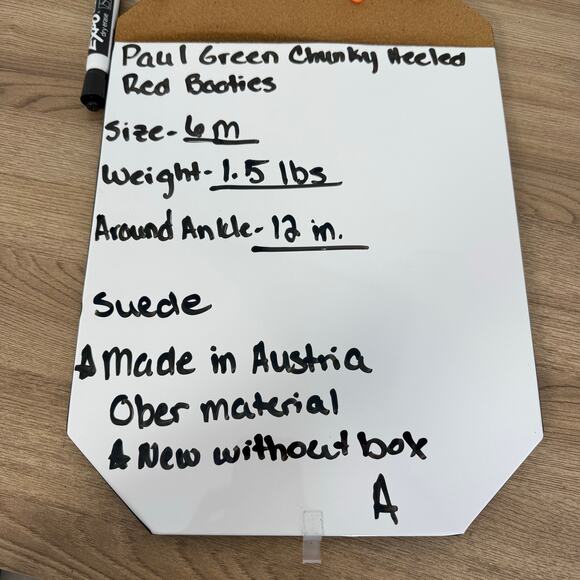 EXPO
dry erase
Paul Green Chunky Heeled
Red Booties
Size- 6 M
Weight- 1.5 lbs
Around Ankle- 12 in.
Suede
Made in Austria
Ober material
New without box
A